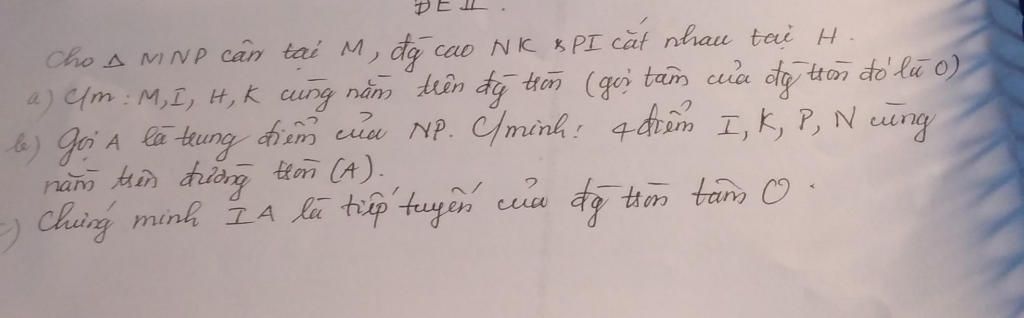 ĐỀ II.
Cho Δ MNP cân tại M, đg cao NK & PI cắt nhau tại H.
a) C/m: M, I, H, K cùng nằm trên đg tròn (gọi tâm của đg tròn đó là O)
b) Gọi A là trung điểm của NP. C/minh: 4 điểm I, K, P, N cùng
nằm trên đường tròn (A).
c) Chứng minh IA là tiếp tuyến của đg tròn tâm O.